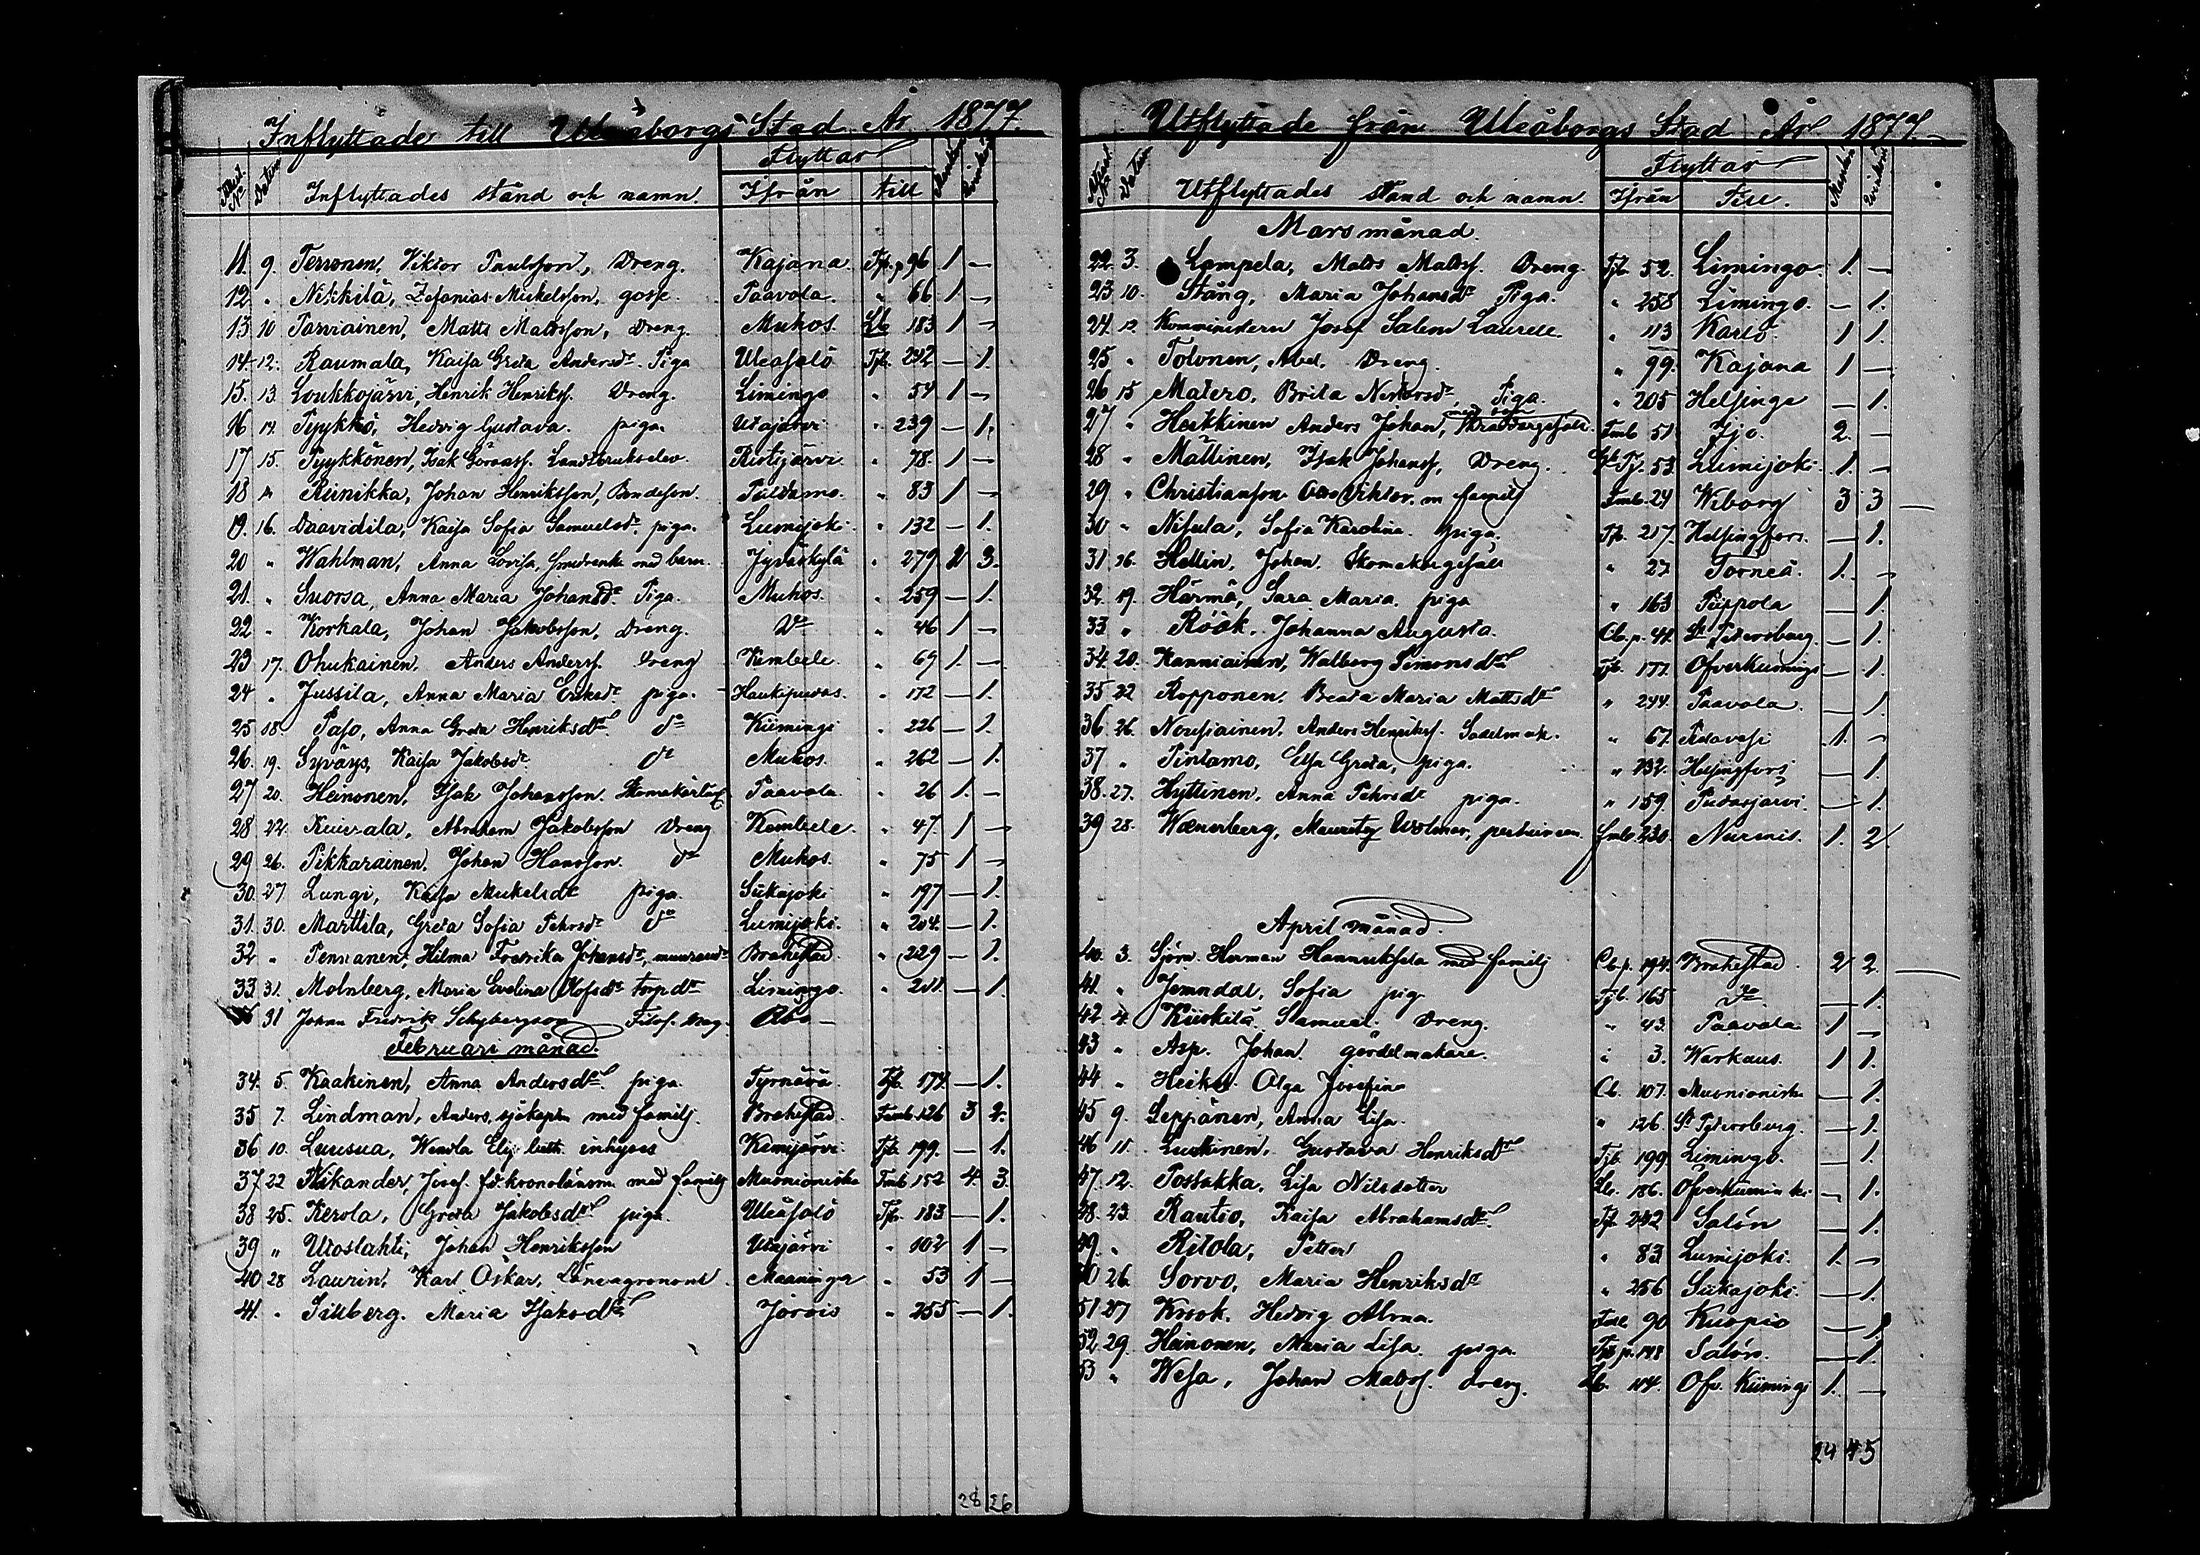 Inflyttade till Uleåborgs Stad År 1877.
Attest. No Datum Inflyttades stånd och namn. Flyttar Ifrån till Mankön Qvinkön
11. 9. Terronen, Viktor Paulsson, Dreng. Kajana Tjb. p. 96 1 —
12. " Nikkilä, Zefanias Mickelsson, gosse. Paavola. " 66 1 —
13. 10 Parviainen, Matts Mattsson, Dreng. Muhos Lb 183 1 —
14. 12. Raumala, Kaisa Greta Andersdr. Piga Uleåsalo Tjb. 242 — 1.
15. 13. Loukkojärvi, Henrik Henrikss. Dreng. Limingo " 54 1 —
16 14. Pyykkö, Hedvig Gustava. piga. Utajärvi " 239 — 1.
17 15. Pyykkönen, Isak Göransf. Landtbrukselev. Ristijärvi " 78. 1 —
18 " Reinikka, Johan Henriksson, Bondeson. Pulkkila " 83 1 —
19. 16. Daavidila, Kaisa Sofia Samuelsdr. piga. Lumijoki. " 132 — 1.
20 " Wahlman, Anna Lovisa, Smedsenka med barn. Jyväskylä " 279 2 3.
21. " Suorsa, Anna Maria Johansdr. Piga. Muhos. " 259 — 1.
22 " Korkala, Johan Jakobsson, Dreng. Do " 46 1 —
23 17. Ohukainen, Anders Anderss. Dreng Kembele " 67 1. —
24 " Jussila, Anna Maria Eriksdr. piga. Haukipudas. " 172 — 1.
25 18 Paso, Anna Greta Henriksdr. do Kiimingi " 226 — 1.
26. 19. Syväys, Kaisa Jakobsdr. do Muhos. " 262 — 1.
27 20. Heinonen, Isak Johansson. Skomakarlärl. Paavola " 26 1. —
28 22. Kuivala, Abraham Jakobsson Dreng Kembele. " 47 1 —
29 26. Pikkarainen, Johan Hansson. do Muhos. " 75 1 —
30. 27 Lungi, Kaisa Mickelsdr. piga Siikajoki " 197 — 1.
31. 30. Marttila, Greta Sofia Petersdr. do Lumijoki. " 204. — 1.
32 " Pennanen, Hilma Fredrika Johansdr., Brahestad " 229 — 1.
33. 31. Molnberg, Maria Evelina Olofsdr. torpdr. Limingo. " 211. — 1.
31 Johan Fredrik Schybergson Filos. Mag. Åbo —
Februari månad.
34. 5. Kaakinen, Anna Andersdr. piga. Tyrnävä Tjb. 174. — 1.
35 7. Lindman, Anders, sjökaptn. med familj. Brahestad. Fmb 126 3 2.
36 10. Luusua, Wendla Elisabeth inhyses Kemijärvi Tjb. 199. — 1.
37 22 Wikander, Josef. fd. kronolänsm. med familj Muonioniska Fmb 152 4. 3.
38 25. Kerola, Greta Jakobsdr. piga. Uleåsalo Tjb. 183 — 1.
39 " Utoslahti, Johan Henriksson Utajärvi " 102 1 —
40 28 Laurin, Karl Oskar, Länsagronom Maaninga " 53 1 —
41. " Sillberg, Maria Isaksdr. Jorois " 255 — 1.
28 26
Utflyttade från Uleåborgs Stad År 1877.
Attest. No Datum Utflyttades stånd och namn. Flyttar Ifrån Till. Mankön Qvinkön
Mars månad.
22 3. Lampela, Matts Mattss. Dreng. Tjb. 52. Limingo. 1. —
23 10. Stång, Maria Johansdr. Piga. " 258 Limingo. — 1.
24 12 Komministern Josef Salem Laurell. " 113 Karlö. 1 1.
25 " Tolonen, Abel, Dreng. " 99. Kajana 1 —
26 15 Matero, Brita Nestorsdr. Piga. " 205 Helsinge — 1.
27 " Heikkinen Anders Johan, med son Fmb 51 Ijo. 2. —
28 " Mattinen, Isak Johanss, Dreng. Tj. 53. Lumijoki. 1. —
29. " Christianson Otto Viktor, m familj Fmb. 24 Wiborg 3 3 —
30 " Nisula, Sofia Karolina. piga. Tjb. 217. Helsingfors. — 1.
31 16. Hellin, Johan. Skomakargesäll " 27 Torneå. 1. —
32 19. Härmä, Sara Maria. piga " 163 Piippola — 1.
33. " Röök, Johanna Augusta. Cb. p. 44. St Petersburg. — 1.
34. 20. Kanniainen, Walborg Simonsdr. Tjb. 177. Öfverkiimingi — 1.
35 22 Ropponen, Beata Maria Mattsdr. " 244. Paavola. — 1.
36 26. Nousiainen, Anders Henrikss. Sadelmak. " 67. Pielavesi 1. —
37 " Pintamo, Elsa Greta, piga. " 232. Helsingfors — 1.
38. 27. Hyttinen, Anna Petersdr. piga. " 159. Pudasjärvi. — 1.
39 28. Wænerberg, Mauritz Wolmar, Fmb. 230. Nurmis. 1. 2.
April månad.
40. 3. Sjöm. Herman Hannuksela med familj Cb. p. 194. Brahestad. 2 2. —
41. " Jemndal, Sofia pig. Tjb. 165 do — 1.
42 4. Kiiskilä Samuel. Dreng. " 43. Paavola 1 —
43 " Asp. Johan gördelmakare. " 3. Warkaus. 1 1.
44 " Heikel Olga Josefina Cb. 107. Muonionisk. — 1.
45 9. Leppänen, Anna Lisa. " 126. St Petersburg. — 1.
46 11. Luukinen, Gustava Henriksdr. Tjb. 199 Limingo. — 1.
47. 12. Possakka, Lisa Nilsdotter Lb. 186. Öfverkiiminki — 1.
48. 23. Rautio, Kaisa Abrahamsdr. Tjb. 242 Salón — 1.
49. " Ritola, Petter " 83 Lumijoki. 1. —
50 26. Sorvo, Maria Henriksdr. " 256 Siikajoki. — 1.
51 27 Krook. Hedvig Alma. 90 Kuopio — 1.
52 29. Heinonen, Maria Lisa. piga Tjb p. 148 Salón. — 1.
53 " Wesa, Johan Mattss. dreng. Lb. 104. Öfv. Kiimingi 1. —
24 45